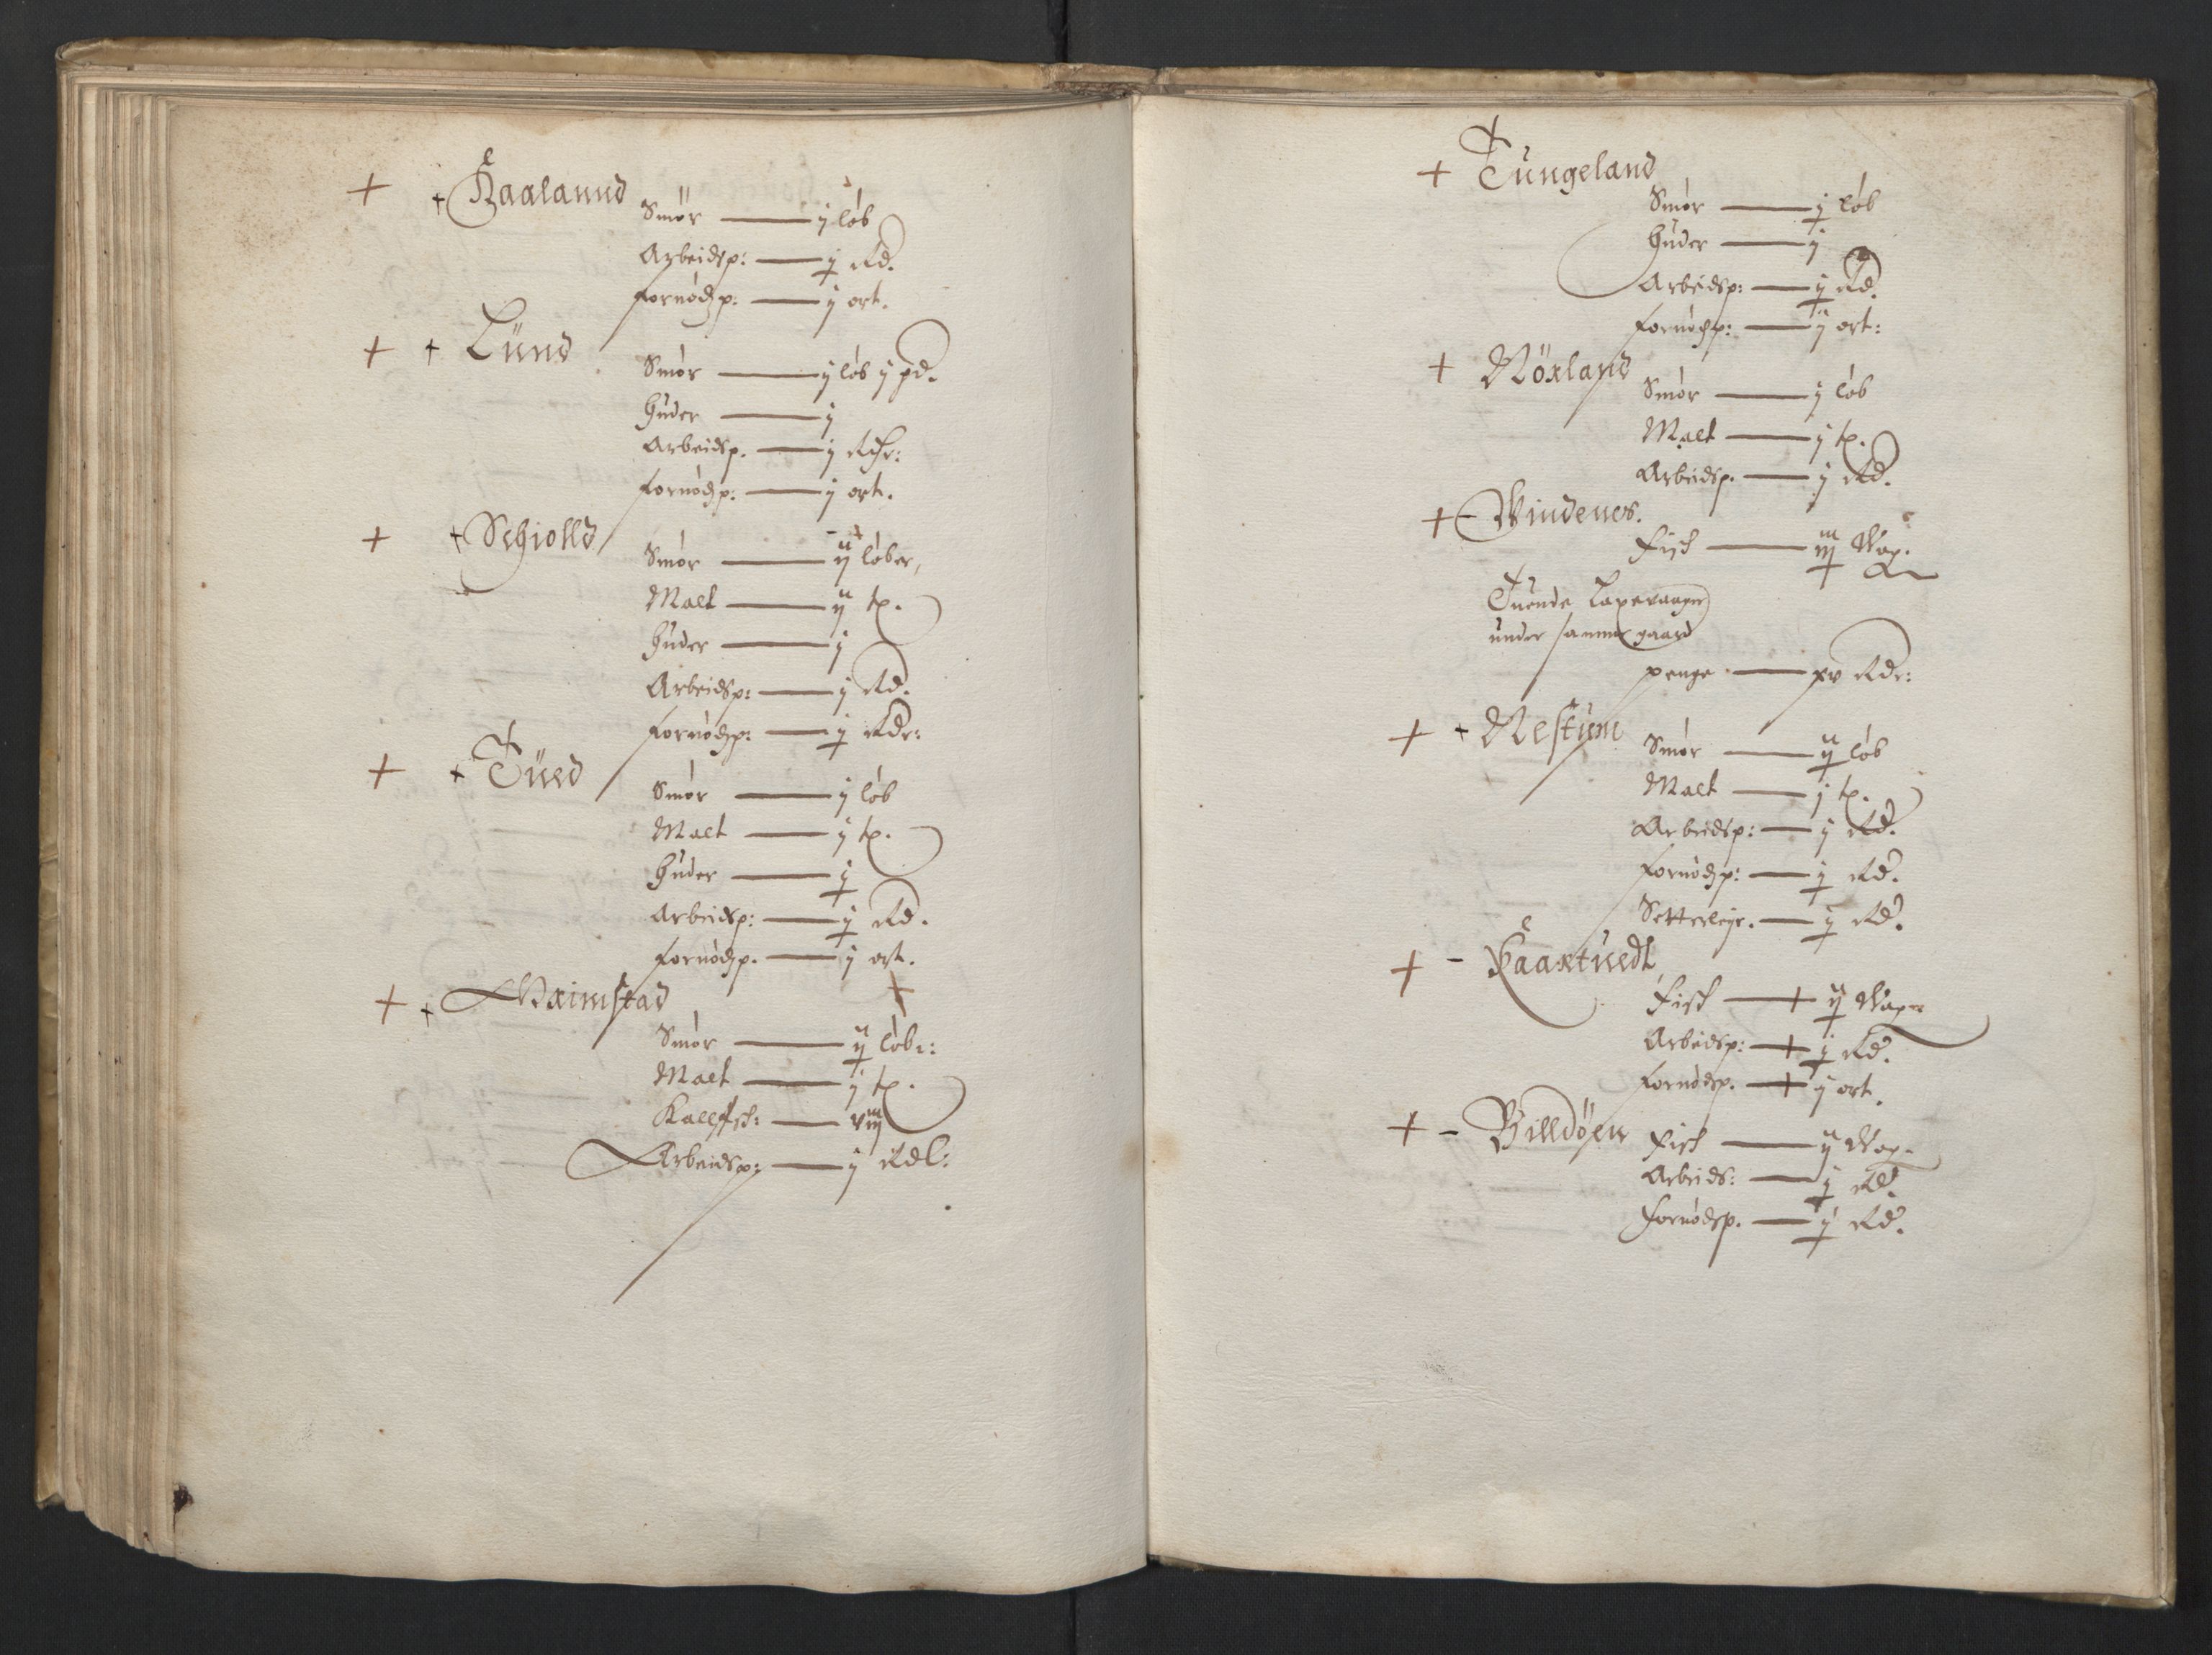 + + Haalannd
Smör — j löb
Arbeidsp: — j Rd.
fornödsp: — j ort.
+ + Lünd
Smör — j löb j pd.
Huder — j
Arbeidsp. — j Rdr:
fornödsp: — j ort.
+ + Schiolld
Smör — ij löber,
Malt — ij tp.
Huder — j
Arbeidsp: — j Rd.
fornödsp: — j Rdr:
+ + Tüed
Smör — j löb
Malt — j tp.
Huder — j
Arbeidsp: — j Rd.
fornödsp. — j ort.
+ + Greimstad
Smör — ij löbr:
Malt — j tp.
Kallffsk: — viij
Arbeidsp: — j Rdl:
+ Tungeland
Smör — j löb
Huder — j
Arbeidsp: — j Rd.
fornödsp: — ij ort:
+ Nöxland
Smör — j löb
Malt — j tp.
Arbeidsp. — j Rd.
+ – Windenes.
Fisch — iij Wog.
Tuende Laxevaager
under samme gaard
penge — xv Rdr:
+ + Nestüm
Smör — ij löb
Malt — j tp.
Arbeidsp: — j Rd.
fornödsp: — j Rd.
Setterleye. — j Rd.
+ – Haaxtuedt
Fisch — ij Woger
Arbeidsp: — j Rd.
fornödsp. — j ort.
+ – Billdöen
Fisch — ij Wog.
Arbeids: — j Rd.
fornödsp. — j Rd.